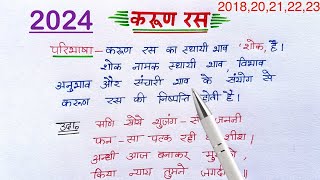 2024
करूण रस
2018,20,21,22,23
परिभाषा- करूण रस का स्थायी भाव 'शोक' है।
शोक नामक स्थायी भाव, विभाव
अनुभाव और संचारी भाव के संयोग से
करूण रस की निष्पत्ति होती है।
उदा०- मणि खोये भुजंग-सी जननी
फन-सा पटक रही थी शीश।
अन्धी आज बनाकर मुझको
किया न्याय तुमने जगदीश